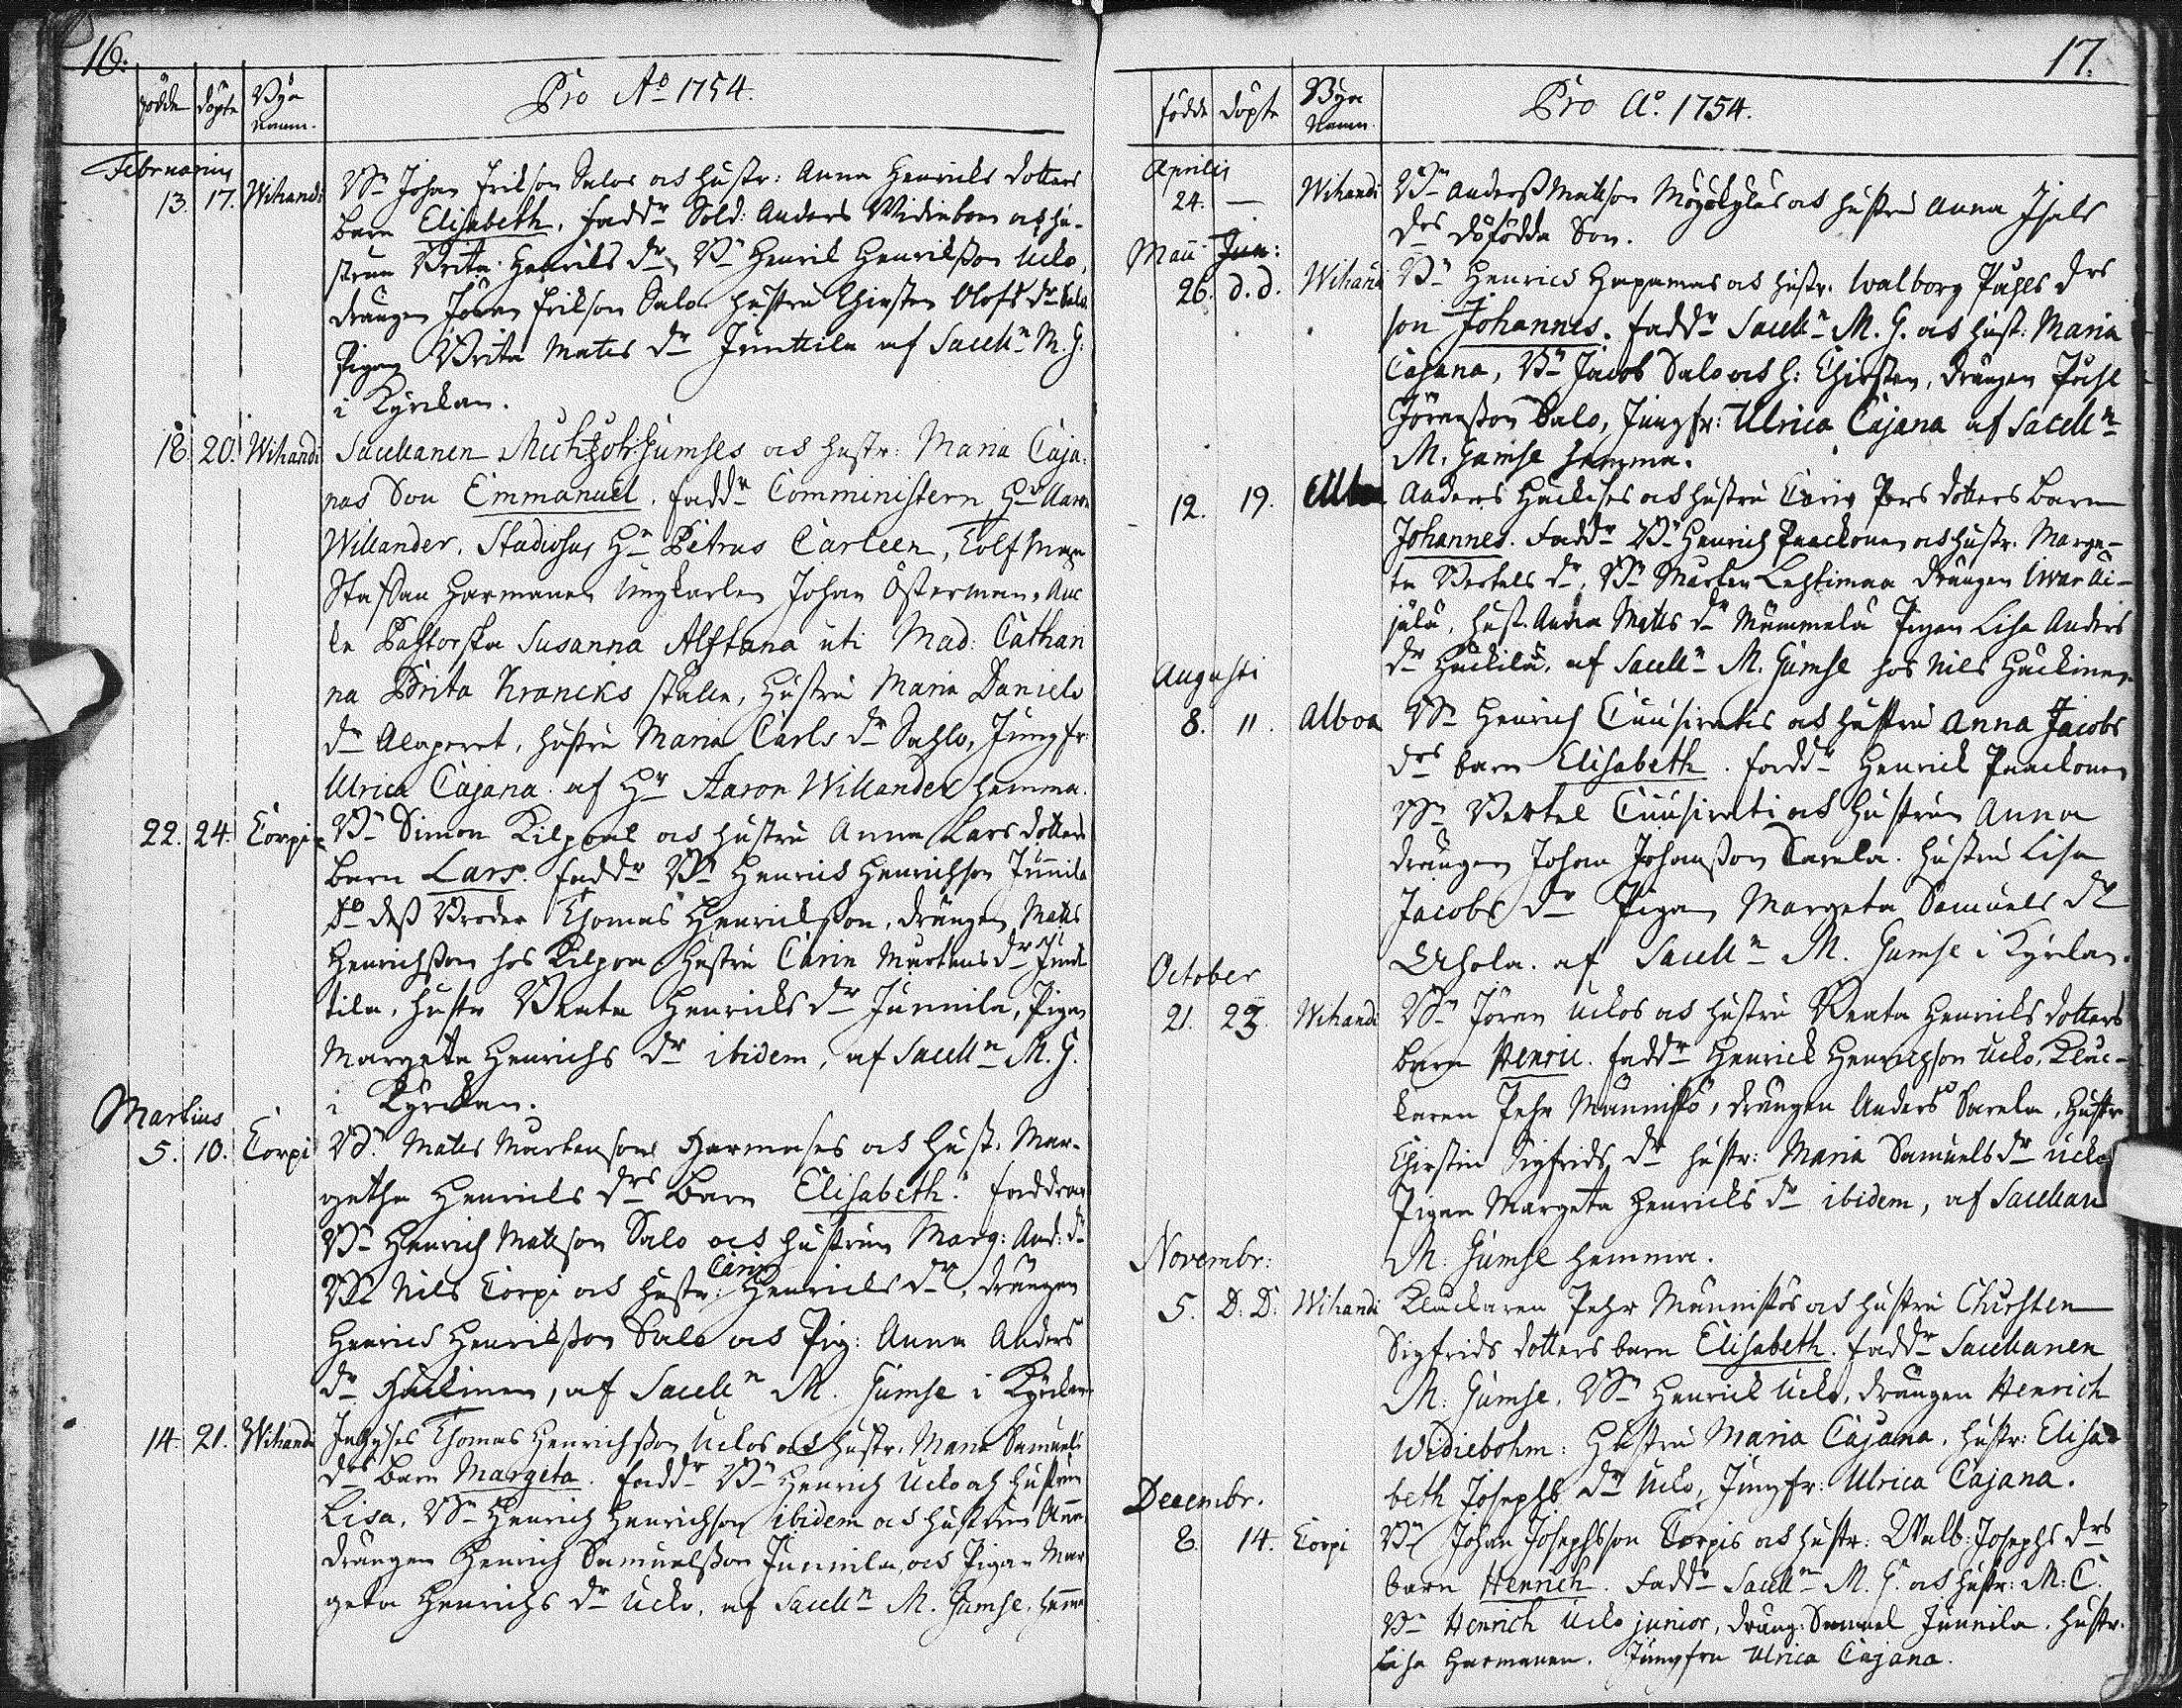 16.
födde döpte Bya
namn.
Pro Aº 1754.
Februarius
13. 17. Wihandi Bn Johan Erikson Salos och hustr: Anna Henriks dotters
barn Elisabeth, faddr Sold: Anders Widinbom och hu-
strun Brita Henriks dr, Bn Henrik Henrikßon Ucko,
drängen Johan Erikson Salo hustru Chirstin Olofs dr Salo
Pigan Brita Mats dr Junttila af Sacelln M. G.
i Kyrckan.
18. 20. Wihandi Sacellanen Gumses och hustr: Maria Caja-
nas Son Emmanuel. faddr Comministern, Hr Aaron
Willander, Studiosus Hr Petrus Carleen,
Staffan Harmanen Ungkarlen Johan Österman, Enc
ke Pastorska Susanna Alftana uti Mad: Cathari
na Brita Krancks ställe, hustru Maria Daniels
dr Alaperet, hustru Maria Carls dr Sahlo, Jungfr:
Ulrica Cajana. af Hr Aaron Willander hemma.
22. 24. Corpi Bn Simon Kilpoas och hustru Anna Lars dotters
barn Lars. faddr Bn Henrick Henrichson Junnila
Do deß Broder Thomas Henrickßon, drängen Mats
Henrichßon hos Kilpoa hustru Carin Mårtens dr Junt
tila, hustr Beata Henricks dr Junnila, Pigan
Margeta Henrichs dr ibidem, af Sacelln M. G.
i Kyrckan.
Martius
5. 10. Corpi Bn Mats Mårtensons Harmases och hust. Mar-
getha Henricks drs barn Elisabeth. faddrar
Bn Henrich Matsson Salo och hustrun Marg: And: dr
Bn Nils Corpi och hustr: Carin Henricks dr, drängen
Henrick Henrikßon Salo och Pig: Anna Anders
dr Häckinen, af Sacelln M. Gumse i Kyrckan
14. 21. Wihandi Inhyses Thomas Henrichßon Uckos och hustr. Maria Samuels
drs barn Margeta. faddr Bn Henrich Ucko och hustrun
Lisa, Bn Henrich Henrichson ibidem och hustrun Anna,
drängen Henrich Samuelßon Junnila, och Pigan Mar
geta Henrichs dr Ucko, af Sacelln M. Gumse. hemma
17.
födde döpte Bya
Namn.
Pro Aº. 1754.
Aprilis
24. — Wihandi Bn Anderß Matsson och hustru Anna Isaks
drs dödfödda Son.
Maii Jun:
26. d.d. Wihandi Bn Henrics Hapamas och hustr. Walborg Påhls drs
son Johannes. faddr Sacelln M. G. och hust: Maria
Cajana, Bn Jacob Salo och h: Chirsten, drängen Påhl
Jöranßon Salo, Jungfr: Ulrica Cajana af Sacelln
M. Gumse hemma.
12. 19. Alboa Anders Häckises och hustru Carin Pers dotters barn
Johannes. Faddr Bn Henrich Paackonen och hustr. Marge-
ta Bertels dr, Bn Mårten Lehtimaa drängen Iwar Äi-
jälä, hust. Anna Mats dr Mämmelä Pigan Lisa Anders
dr Häckilä, af Sacelln M. Gumse hos Nils Häckinen
Augusti
8. 11. Alboa Bn Henrich Cuusiratis och hustru Anna Jacobs
drs barn Elisabeth. faddr Henrick Paackonen
Bn Bertel Cuusirati och hustrun Anna
drängen Johan Johanßon Carela. hustru Lisa
Jacobs dr Pigan Margeta Samuels dr
Uhola. af Sacelln M. Gumse i Kyrckan.
October
21. 23. Wihandi Bn Jöran Uckos och hustru Beata Henricks dotters
barn Henric. faddr Henrick Henrichson Ucko, Kläc-
karen Pehr Männistö, drängen Anders Sarela, hustr
Chirstin Sigfrids dr hustr: Maria Samuels dr Ucko
Pigan Margeta Henricks dr ibidem, af Sacellan
M: Gumse hemma.
Novembr:
5. D: D: Wihandi Klackaren Pehr Männistös och hustru Chirsten
Sigfrids dotters barn Elisabeth. faddr Sacellanen
M: Gumse, Bn Henrick Ucko, drängen Henrich
Widiebohm: Hustru Maria Cajana, hustr: Elisa-
beth Josephs dr Ucko, Jungfr: Ulrica Cajana.
Decembr.
8. 14. Corpi Bn Johan Josephsson Corpis och hustr: Walb: Josephs drs
barn Henrich. Faddr Sacelln M. G. och hustr: M: C.
Bn Henrich Ucko junior, dräng: Samuel Junnila, hustr.
Lisa Harmanen. Jungfru Ulrica Cajana.